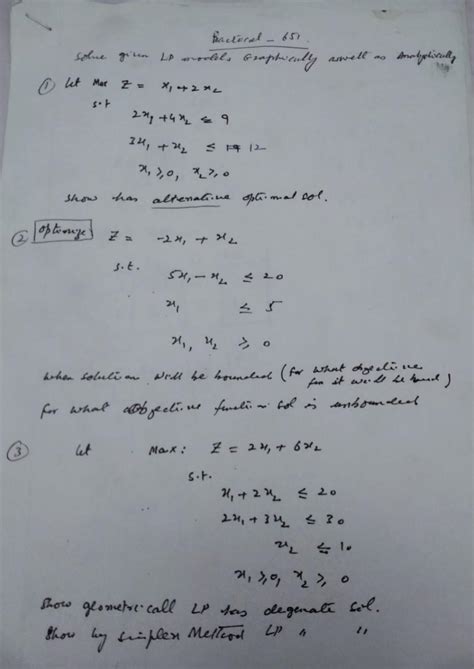 Practical - 651.
Solve given LP models Graphically aswell as Analytically
① let Max Z = x₁ + 2x₂
s.t
2x₁ + 4x₂ ≤ 9
3x₁ + x₂ ≤ 12
x₁ ≥ 0, x₂ ≥ 0
Show has alternative optimal sol.
② Optimize: Z = -2x₁ + x₂
s.t.
5x₁ - x₂ ≤ 20
x₁ ≤ 5
x₁, x₂ ≥ 0
when solution will be bounded (for what objective
fun it will be)
for what objective function sol is unbounded
③ let Max: Z = 2x₁ + 6x₂
s.t.
x₁ + 2x₂ ≤ 20
2x₁ + 3x₂ ≤ 30
x₂ ≤ 10
x₁ ≥ 0, x₂ ≥ 0
Show geometricall LP has degenate sol.
Show by simplex Method LP " "